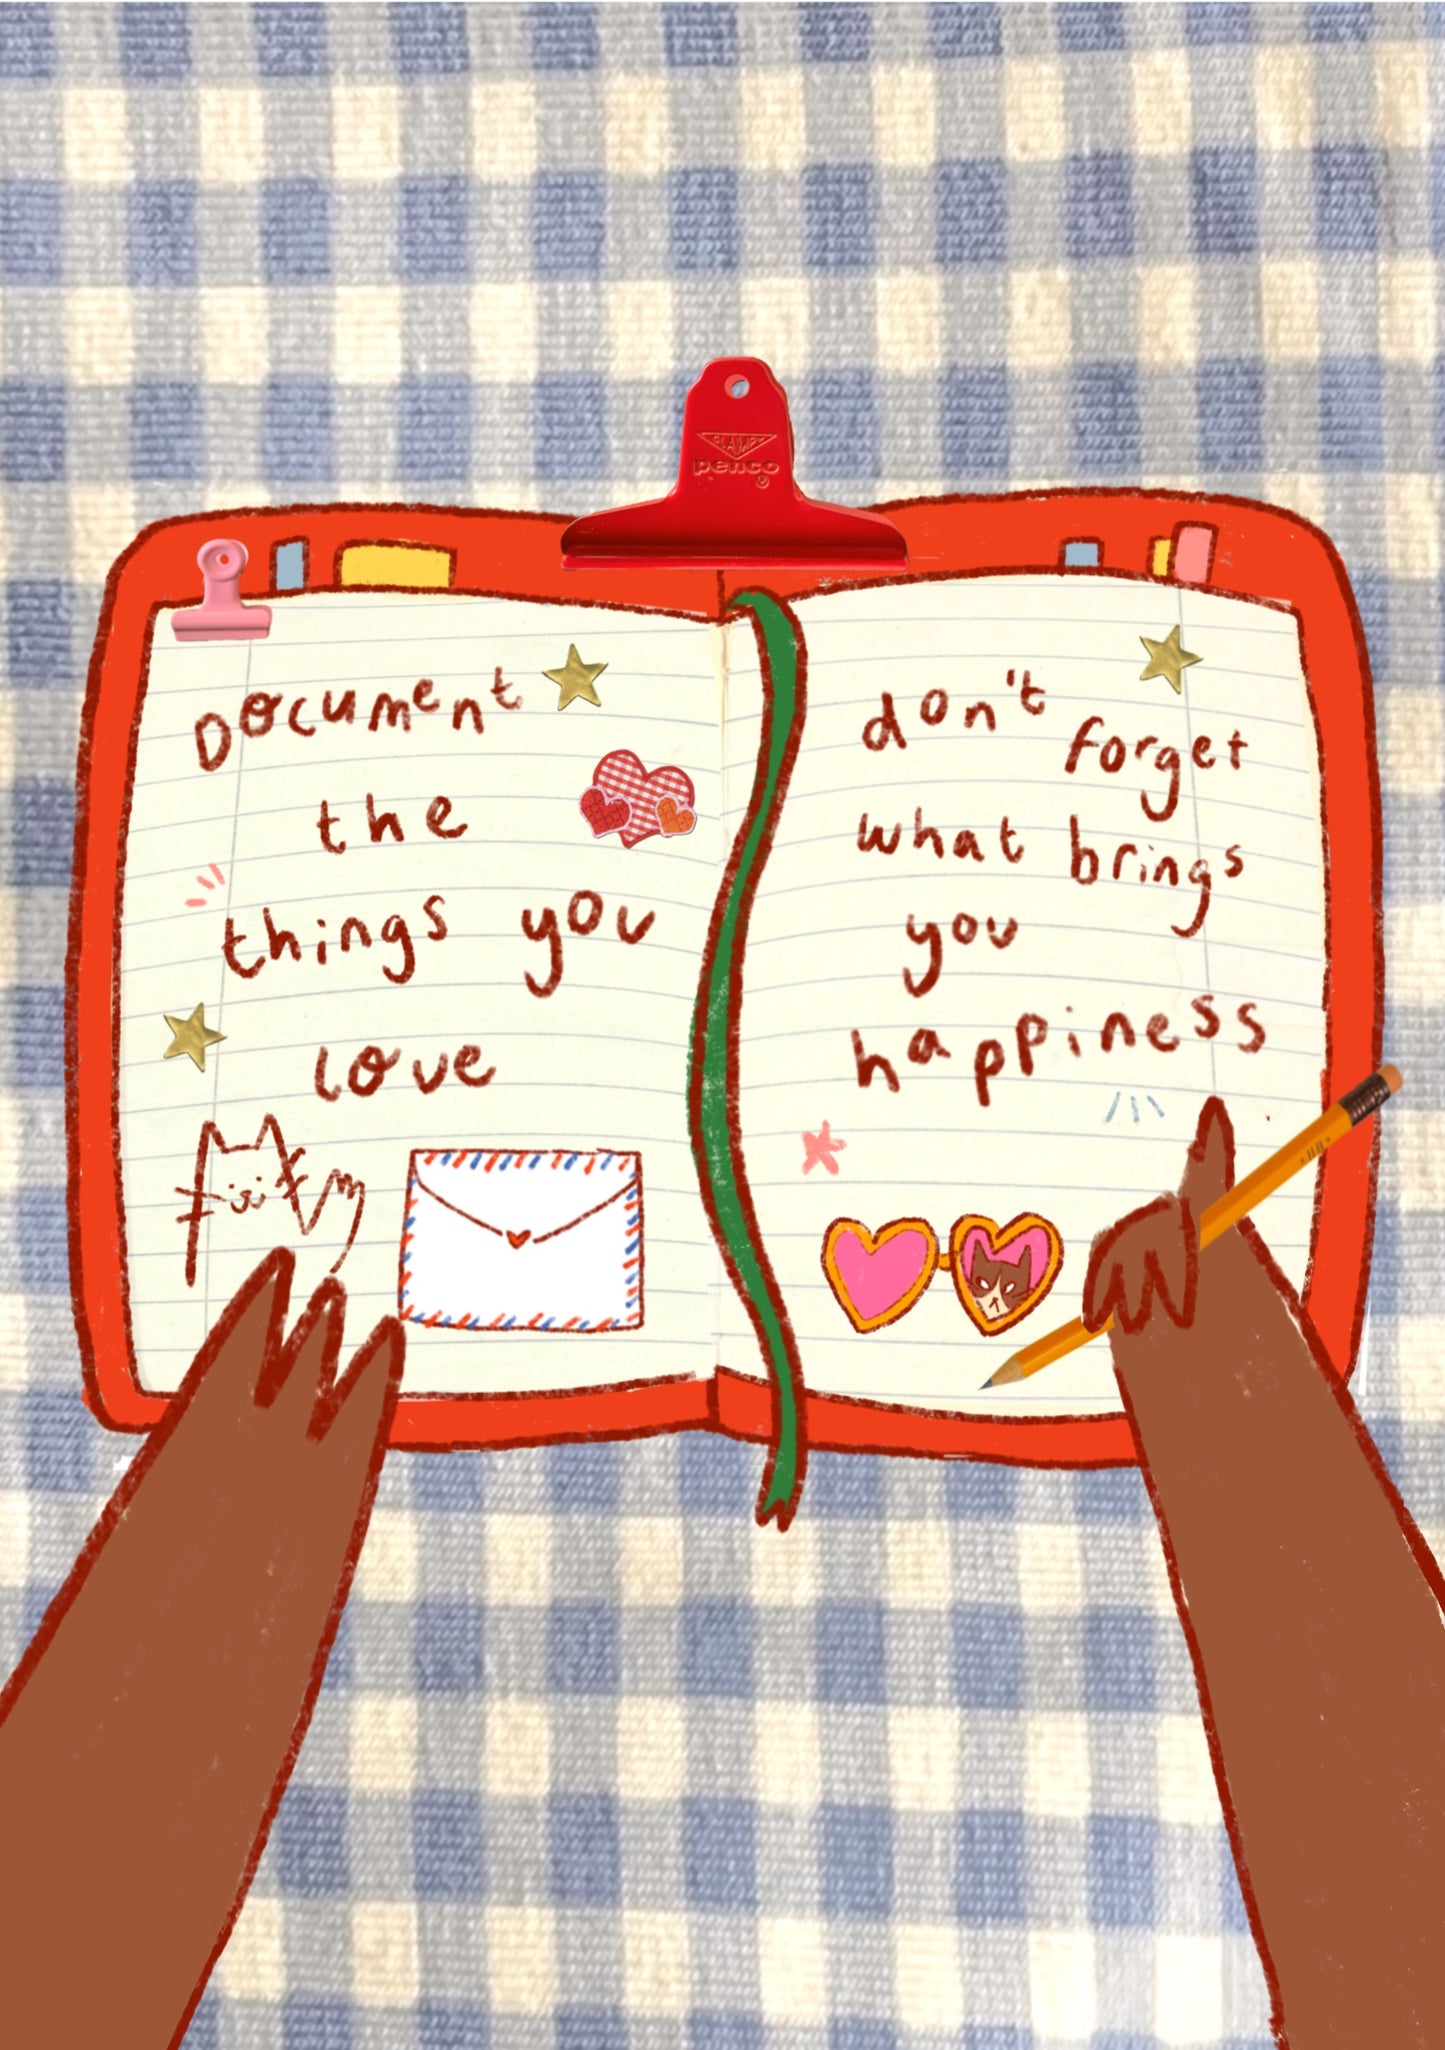 CLAMPY
penco
®
Document
the
things you
love
don't forget
what brings
you
happiness
HB